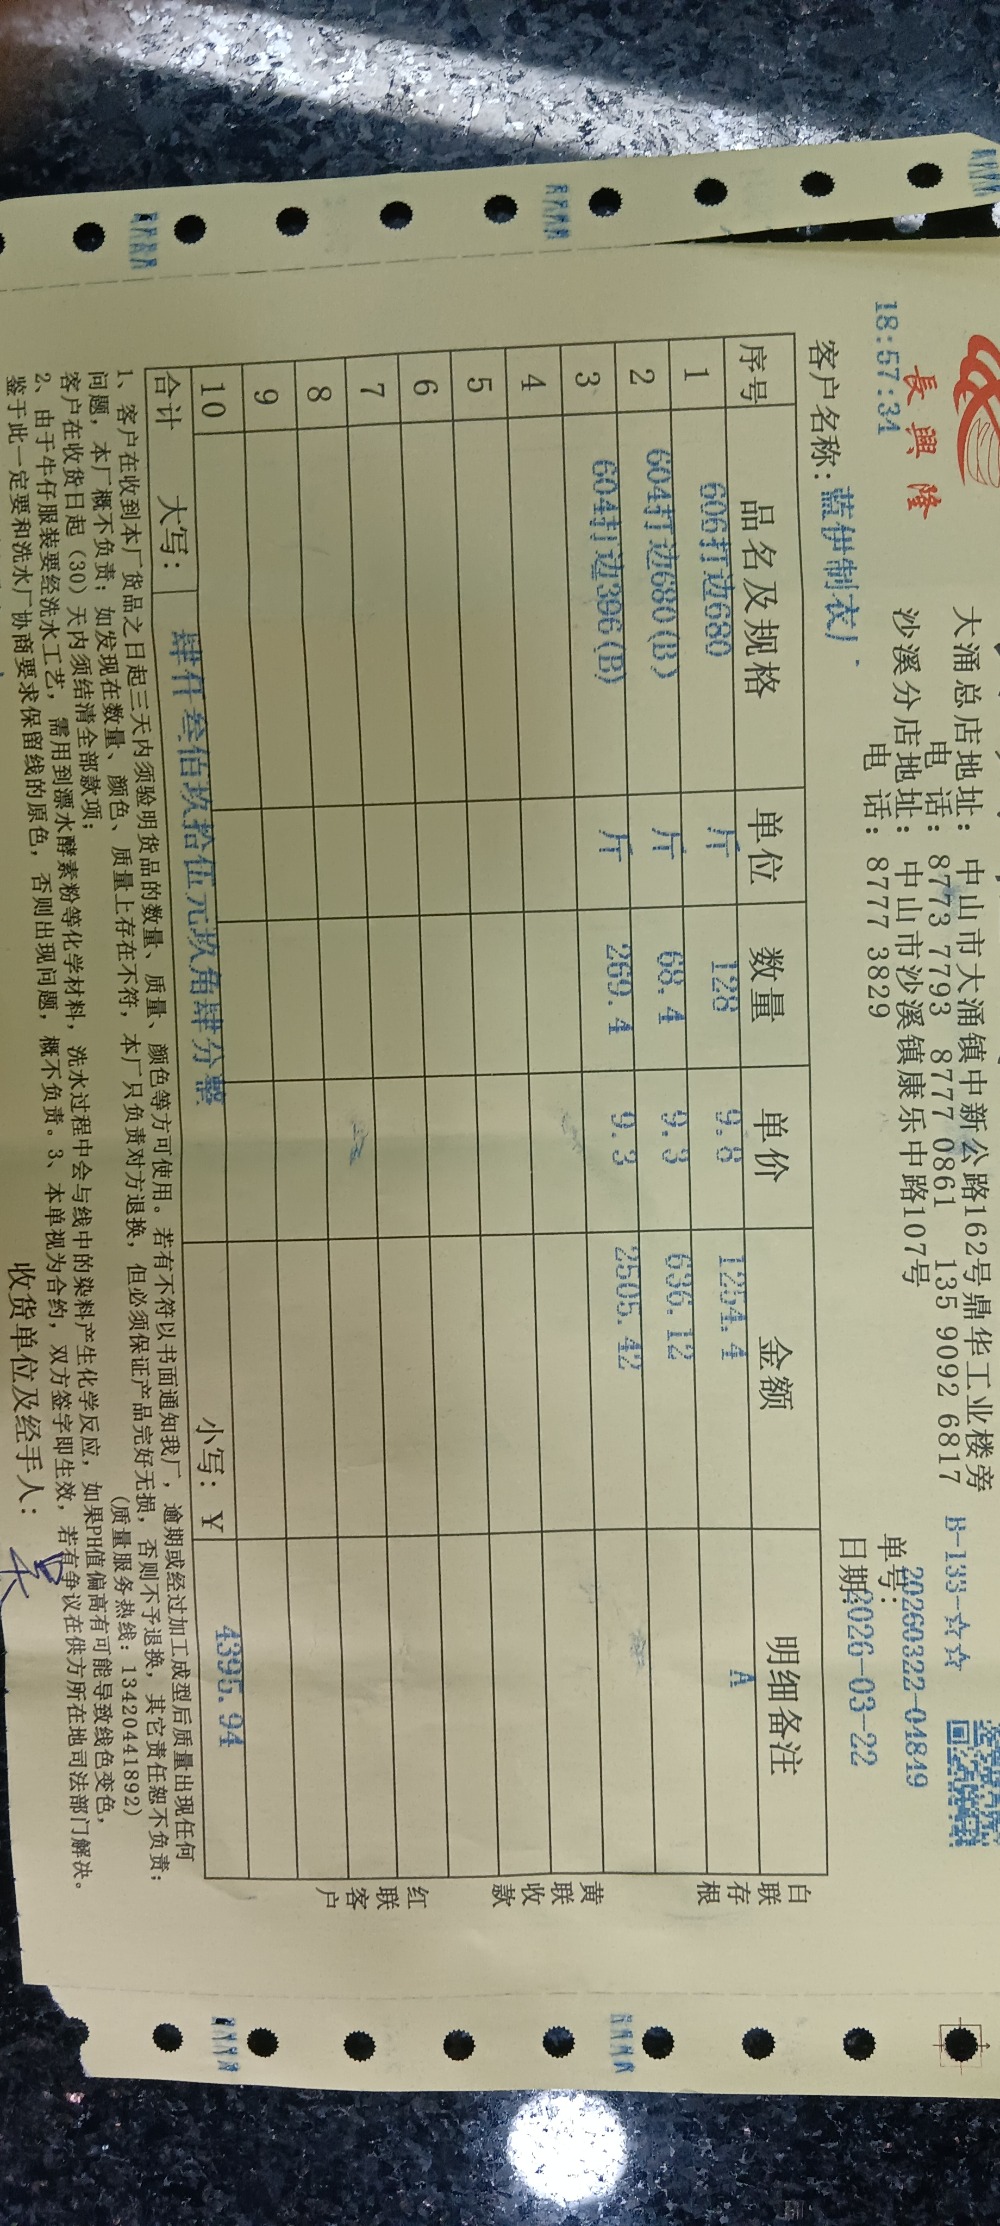 長興隆
大涌总店地址：中山市大涌镇中新公路162号鼎华工业楼旁
电 话：8773 7793 8777 0861 135 9092 6817
沙溪分店地址：中山市沙溪镇康乐中路107号
电 话：8777 3829
B-133-☆☆
单号：20260322-04849
日期：2026-03-22
18:57:34
客户名称：蓝伊制衣厂
序号 品名及规格 单位 数量 单价 金额 明细备注
1 606打边680 斤 128 9.8 1254.4 A
2 604打边680(B) 斤 68.4 9.3 636.12
3 604打边396(B) 斤 269.4 9.3 2505.42
4
5
6
7
8
9
10
合计 大写： 肆仟叁佰玖拾伍元玖角肆分整 小写：￥ 4395.94
白联存根
黄联收款
红联客户
1、客户在收到本厂货品之日起三天内须验明货品的数量、质量、颜色等方可使用。若有不符以书面通知我厂，逾期或经过加工成型后质量出现任何
问题，本厂概不负责；如发现在数量、颜色、质量上存在不符，本厂只负责对方退换，但必须保证产品完好无损，否则不予退换，其它责任恕不负责；
客户在收货日起（30）天内须结清全部款项； (质量服务热线：13420441892)
2、由于牛仔服装要经洗水工艺，需用到漂水酵素粉等化学材料，洗水过程中会与线中的染料产生化学反应，如果PH值偏高有可能导致线色变色，
鉴于此一定要和洗水厂协商要求保留线的原色，否则出现问题，概不负责。3、本单视为合约，双方签字即生效，若有争议在供方所在地司法部门解决。
收货单位及经手人：